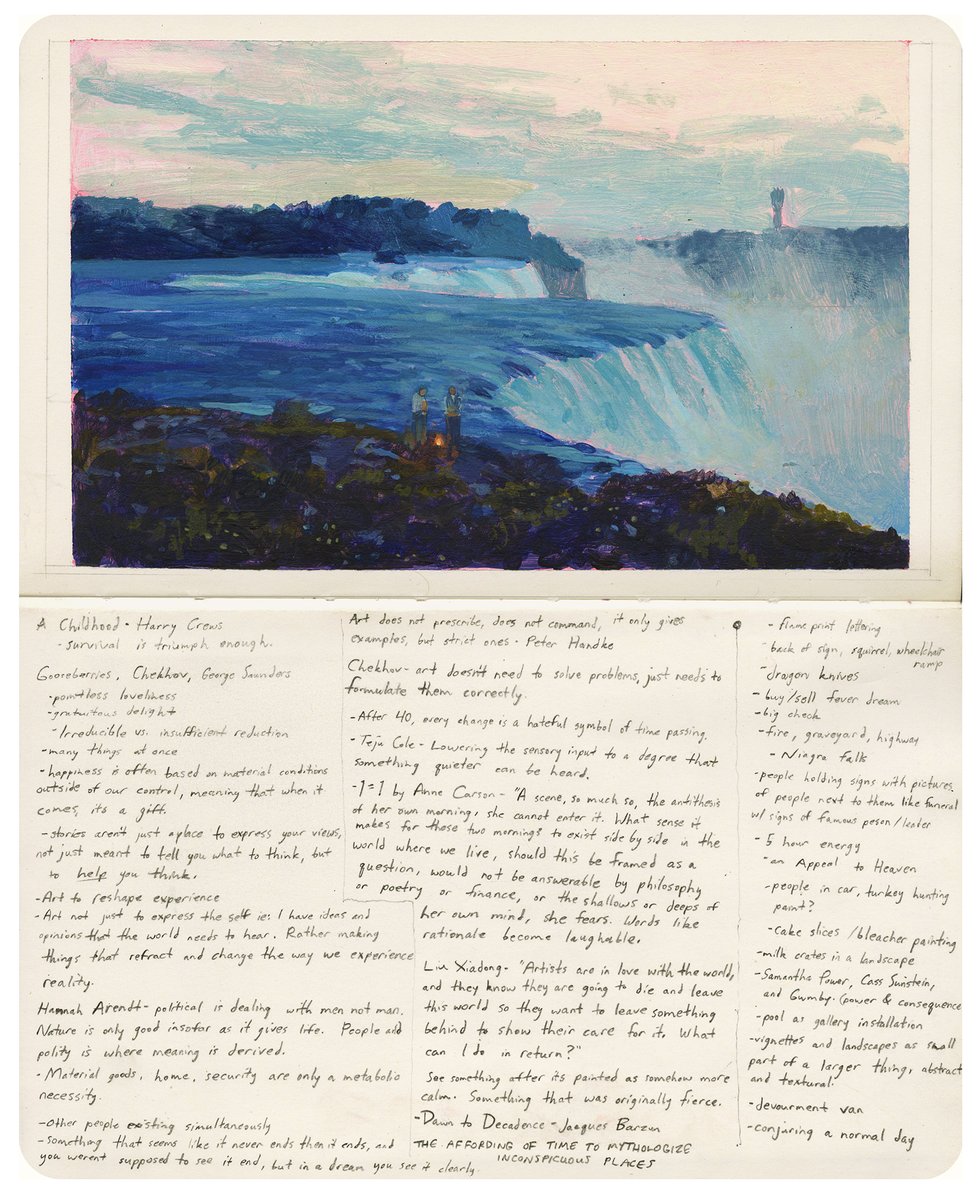 A Childhood - Harry Crews
- survival is triumph enough.
Gooseberries, Chekhov, George Saunders
- pointless loveliness
- gratuitous delight
- Irreducible vs. insufficient reduction
- many things at once
- happiness is often based on material conditions
outside of our control, meaning that when it
comes, its a gift.
- stories aren't just a place to express your views,
not just meant to tell you what to think, but
to help you think.
- Art to reshape experience
- Art not just to express the self ie: I have ideas and
opinions that the world needs to hear. Rather making
things that refract and change the way we experience
reality.
Hannah Arendt - political is dealing with men not man.
Nature is only good insofar as it gives life. People and
polity is where meaning is derived.
- Material goods, home, security are only a metabolic
necessity.
- Other people existing simultaneously
- something that seems like it never ends then it ends, and
you werent supposed to see it end, but in a dream you see it clearly.
Art does not prescribe, does not command, it only gives
examples, but strict ones - Peter Handke
Chekhov - art doesn't need to solve problems, just needs to
formulate them correctly.
- After 40, every change is a hateful symbol of time passing.
- Teju Cole - Lowering the sensory input to a degree that
something quieter can be heard.
- 1=1 by Anne Carson - "A scene, so much so, the antithesis
of her own morning, she cannot enter it. What sense it
makes for these two mornings to exist side by side in the
world where we live, should this be framed as a
question, would not be answerable by philosophy
or poetry or finance, or the shallows or deeps of
her own mind, she fears. Words like
rationale become laughable.
Liu Xiadong - "Artists are in love with the world,
and they know they are going to die and leave
this world so they want to leave something
behind to show their care for it. What
can I do in return?"
See something after its painted as somehow more
calm. Something that was originally fierce.
- Dawn to Decadence - Jacques Barzun
THE AFFORDING OF TIME TO MYTHOLOGIZE
INCONSPICUOUS PLACES
- flame print lettering
- back of sign, squirrel, wheelchair
ramp
- dragon knives
- buy/sell fever dream
- big check
- fire, graveyard, highway
- Niagra falls
- people holding signs with pictures
of people next to them like funeral
w/ signs of famous peson/leader
- 5 hour energy
- an Appeal to Heaven
- people in car, turkey hunting
paint?
- cake slices / bleacher painting
- milk crates in a landscape
- Samantha Power, Cass Sunstein,
and Gumby. (power & consequence
- pool as gallery installation
- vignettes and landscapes as small
part of a larger thing, abstract
and textural.
- devourment van
- conjuring a normal day